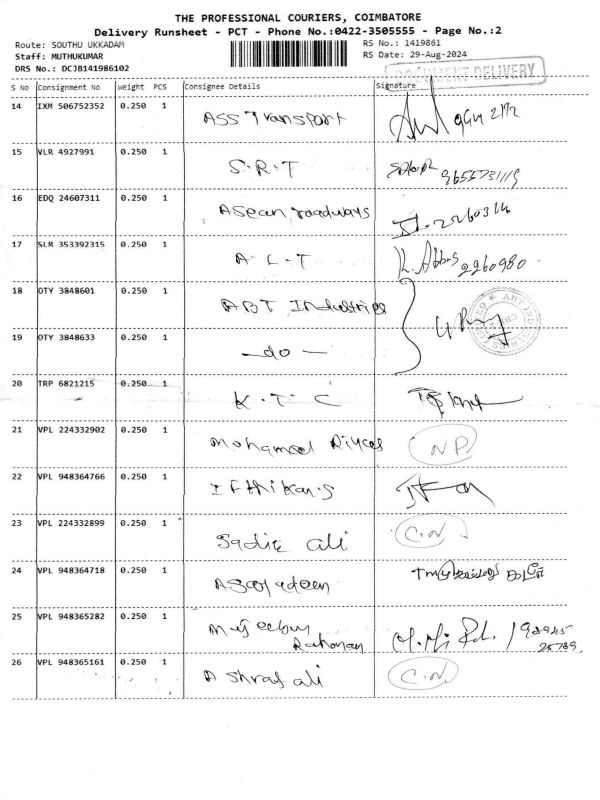 THE PROFESSIONAL COURIERS, COIMBATORE
Delivery Runsheet - PCT - Phone No.:0422-3505555 - Page No.:2
Route: SOUTHU UKKADAM RS No.: 1419861
Staff: MUTHUKUMAR RS Date: 29-Aug-2024
DRS No.: DCJB141986102
DOCUMENT DELIVERY
S No Consignment No Weight PCS Consignee Details Signature
14 IXM 506752352 0.250 1 ASS Transport
15 VLR 4927991 0.250 1 S.R.T 9655731119
16 EDQ 24607311 0.250 1 Asean roadways
17 SLM 353392315 0.250 1 A.L.T K. Abbas 2260980
18 OTY 3848601 0.250 1 ABT Industries
19 OTY 3848633 0.250 1 -do-
20 TRP 6821215 0.250 1 K.T.C
21 VPL 224332902 0.250 1 Mohamed Riyas NP
22 VPL 948364766 0.250 1 Ifthikar.S
23 VPL 224332899 0.250 1 Sadiq ali C.N
24 VPL 948364718 0.250 1
25 VPL 948365282 0.250 1 Mujeebur
Rahman 198945
25789
26 VPL 948365161 0.250 1 Ashraf ali C.N.